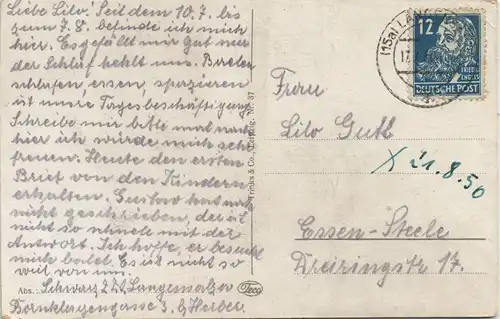 Liebe Lilo. Seit dem 10.7. bis
zum 7.8. befinde ich mich
hier. Es gefällt mir gut nur
der Schlaf fehlt uns. Baden
schlafen, essen, spazieren
ist unsre Tagesbeschäftigung
Schreibe mir bitte mal nach
hier ich würde mich sehr
freuen. Heute den ersten
Brief von den Kindern
erhalten. Gustav hat noch
nicht geschrieben, der ist
nicht so schnell mit der
Antwort. Ich hoffe, er besucht
mich bald. Es ist nicht so
weit von uns.
Abs.: Schwarz z.Zt. Langensalza
3. b/
& Co., Leipzig. Nr. 37
Teco
(15a) LANGENSALZA
12
FRIEDR. ENGELS
DEUTSCHE POST
Frau
Lilo Gutb
X 21.8.50
Essen-Steele
Dreiringstr. 17.